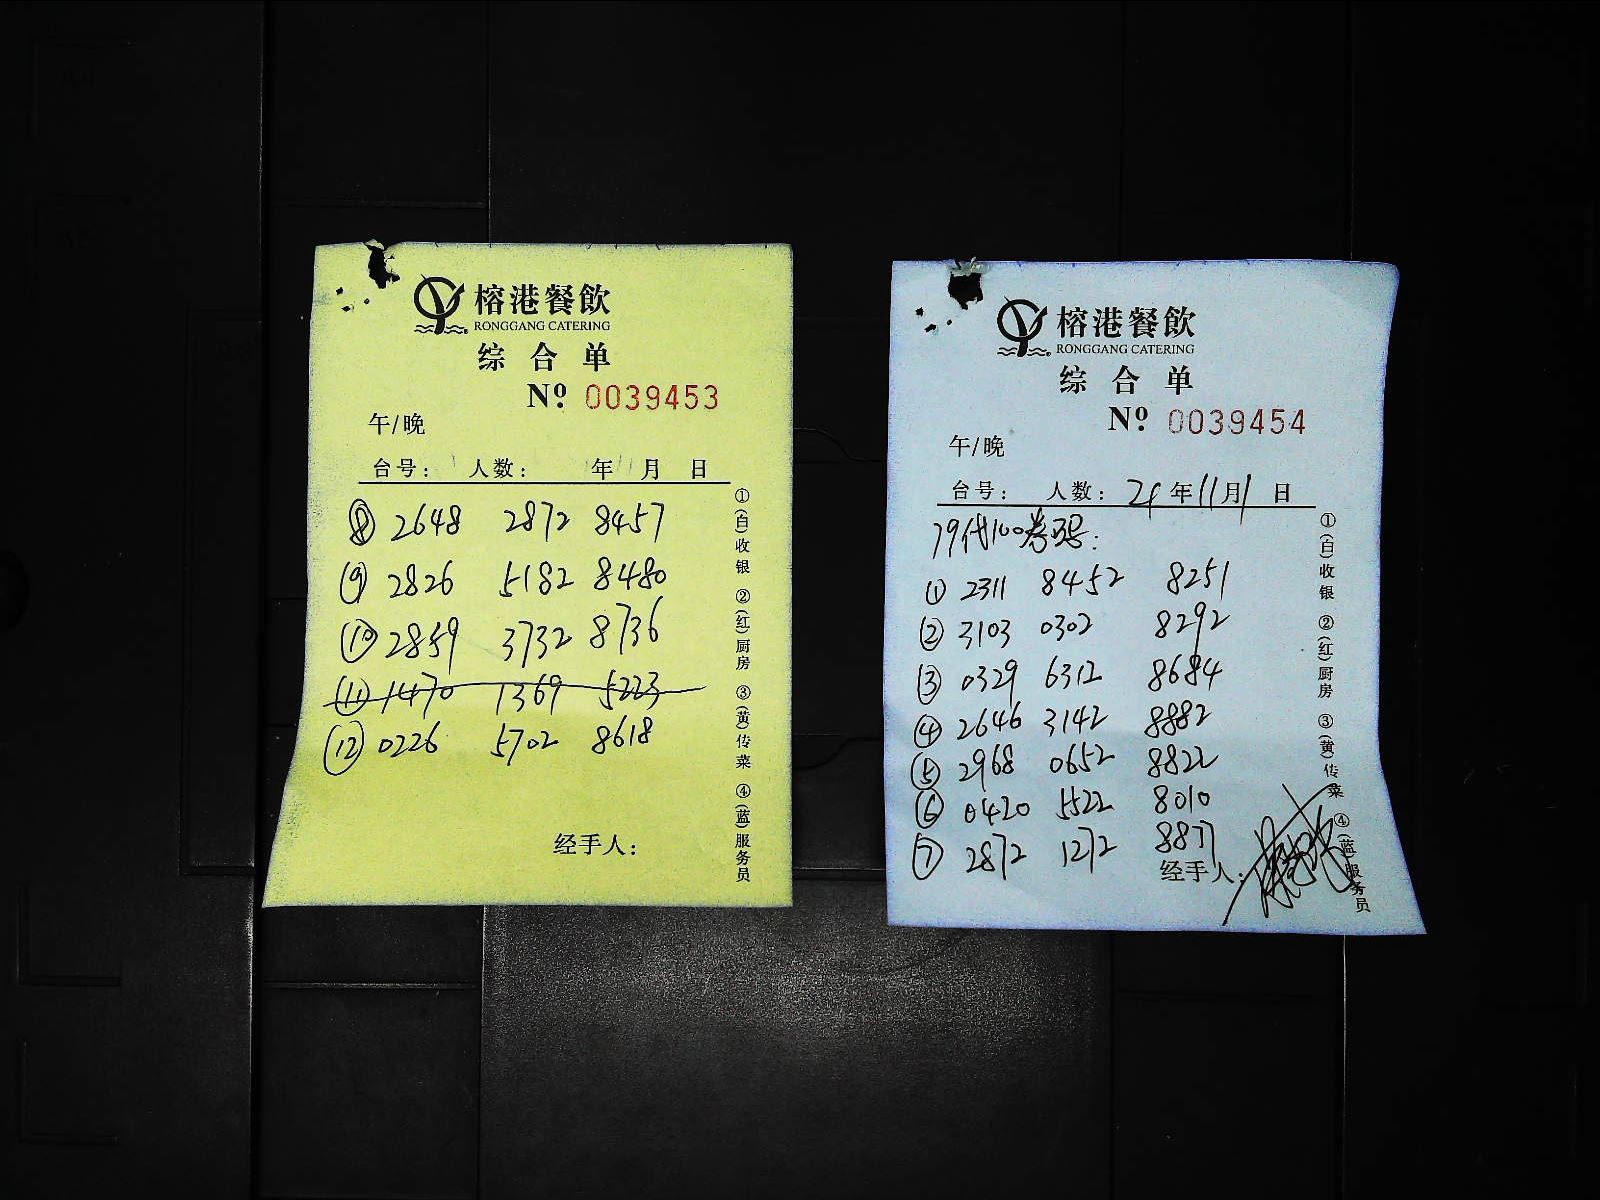 榕港餐飲
RONGGANG CATERING
综合单
Nº 0039453
午/晚
台号: 人数: 年 月 日
⑧ 2648 2872 8457
⑨ 2826 5182 8480
⑩ 2859 3732 8736
⑪ 1470 1369 5223
⑫ 0226 5702 8618
经手人:
①(白)收银 ②(红)厨房 ③(黄)传菜 ④(蓝)服务员
榕港餐飲
RONGGANG CATERING
综合单
Nº 0039454
午/晚
台号: 人数: 21年11月1日
79代100券码:
① 2311 8452 8251
② 3103 0302 8292
③ 0329 6312 8684
④ 2646 3142 8882
⑤ 2968 0652 8822
⑥ 0420 1522 8010
⑦ 2872 1272 8877
经手人:
①(白)收银 ②(红)厨房 ③(黄)传菜 ④(蓝)服务员